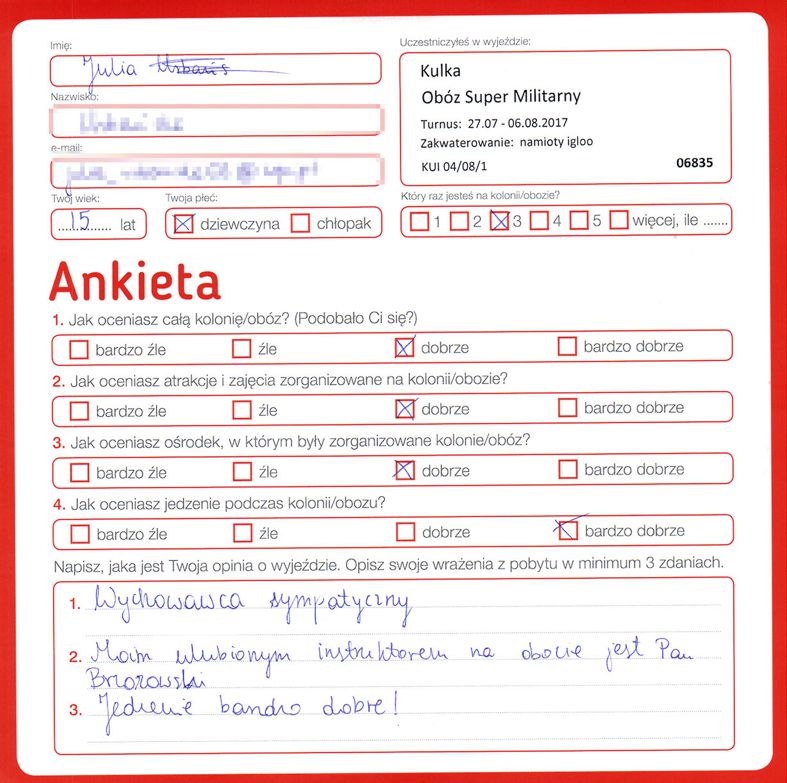 Imię:
Julia
Nazwisko:
e-mail:
Twój wiek:
15 lat
Twoja płeć:
dziewczyna chłopak
Uczestniczyłeś w wyjeździe:
Kulka
Obóz Super Militarny
Turnus: 27.07 - 06.08.2017
Zakwaterowanie: namioty igloo
KUI 04/08/1 06835
Który raz jesteś na kolonii/obozie?
1 2 3 4 5 więcej, ile .......
Ankieta
1. Jak oceniasz całą kolonię/obóz? (Podobało Ci się?)
bardzo źle źle dobrze bardzo dobrze
2. Jak oceniasz atrakcje i zajęcia zorganizowane na kolonii/obozie?
bardzo źle źle dobrze bardzo dobrze
3. Jak oceniasz ośrodek, w którym były zorganizowane kolonie/obóz?
bardzo źle źle dobrze bardzo dobrze
4. Jak oceniasz jedzenie podczas kolonii/obozu?
bardzo źle źle dobrze bardzo dobrze
Napisz, jaka jest Twoja opinia o wyjeździe. Opisz swoje wrażenia z pobytu w minimum 3 zdaniach.
1. Wychowawca sympatyczny
2. Moim ulubionym instruktorem na obozie jest Pan
Brzozowski
3. Jedzenie bardzo dobre!